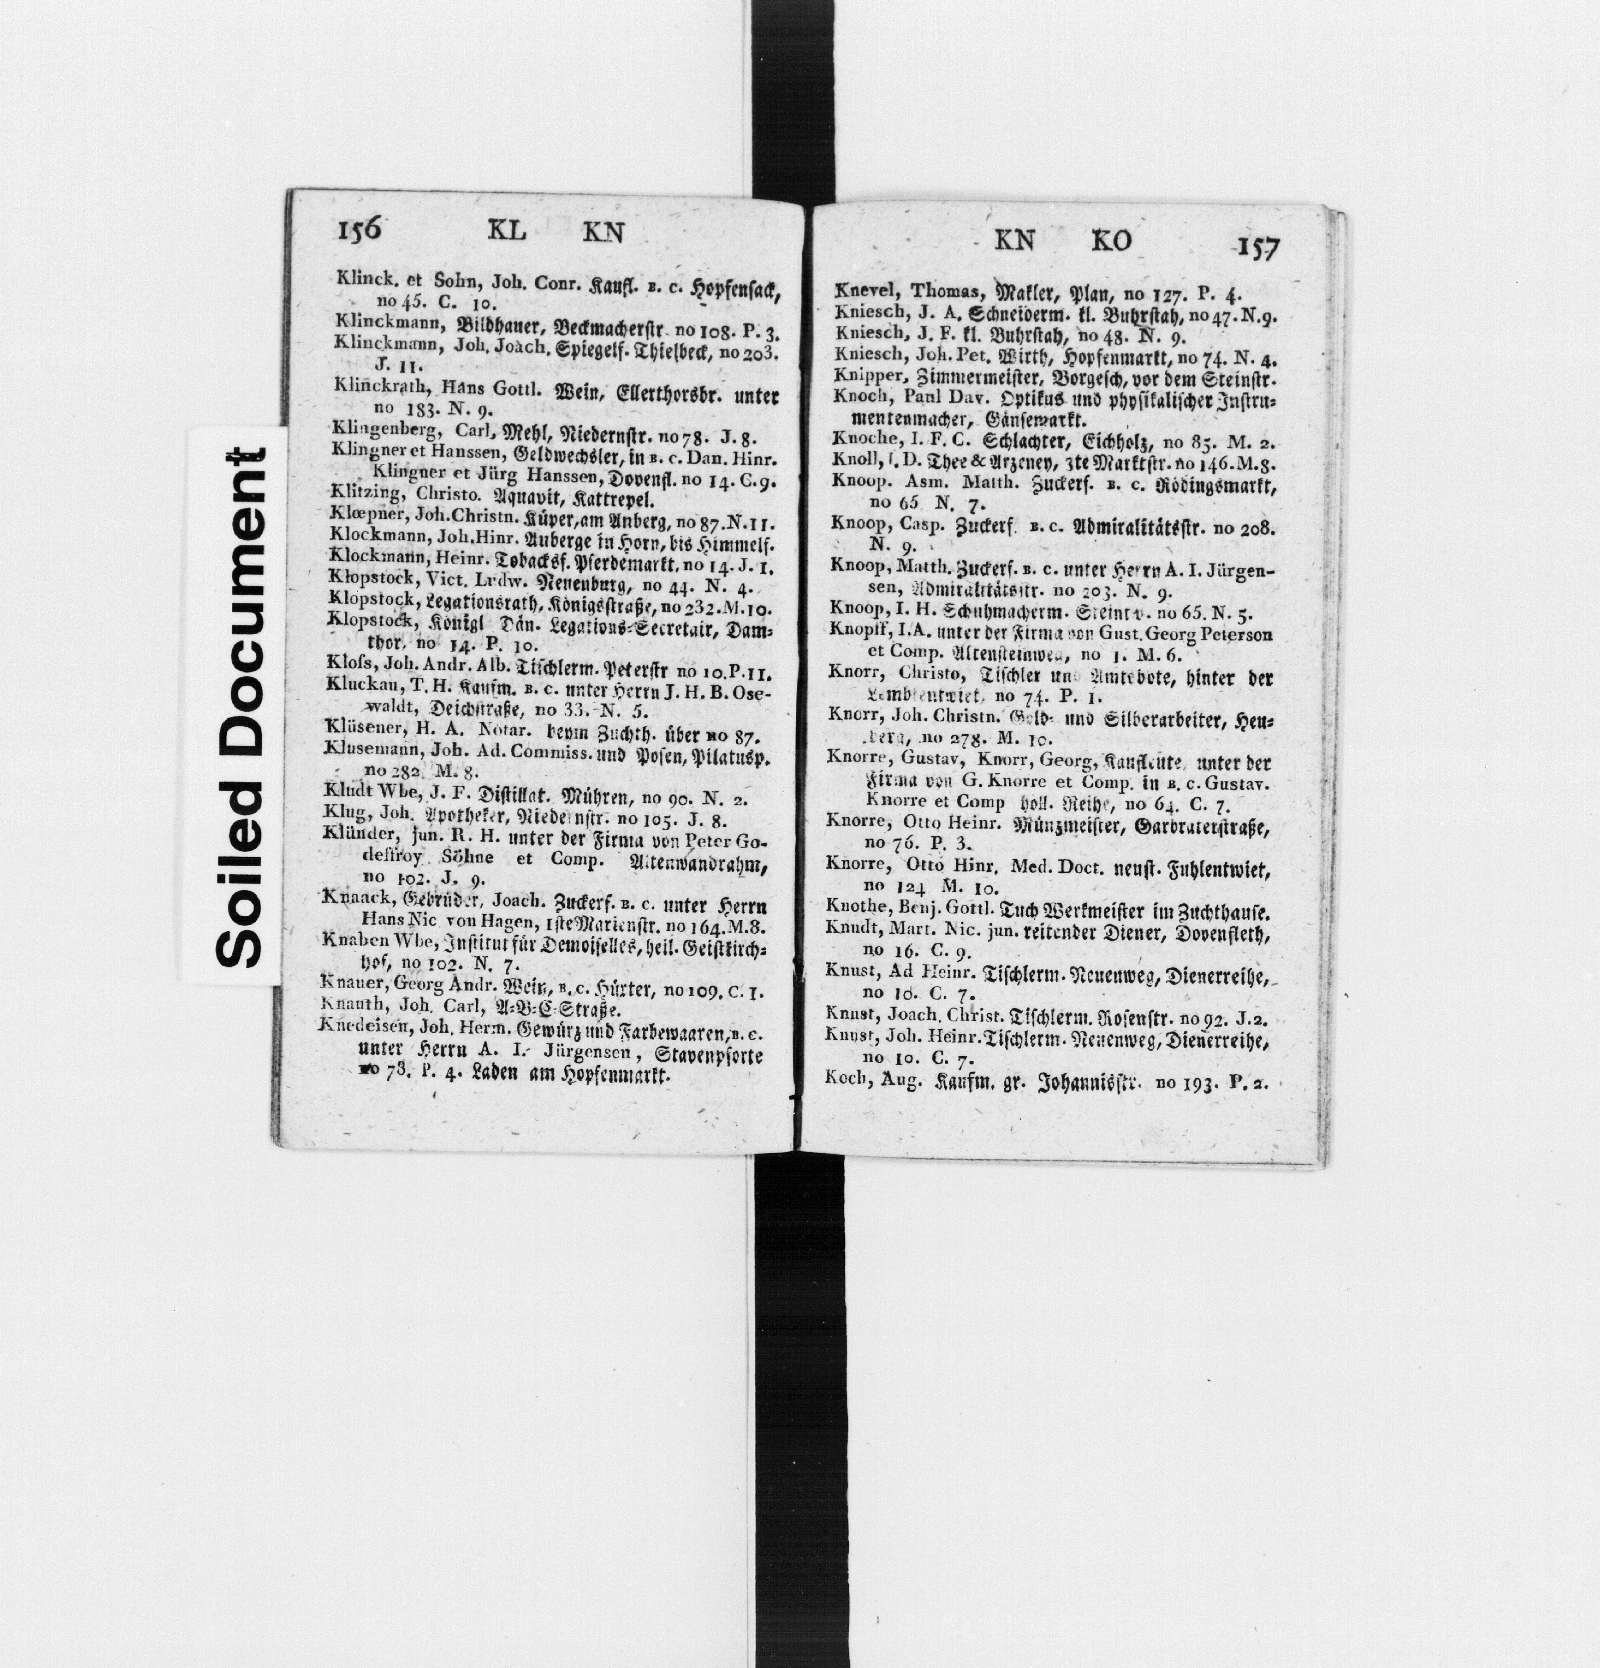 Soiled Document
156 KL KN
Klinck. et Sohn, Joh. Conr. Kaufl. B. C. Hopfensack,
no 45. C. 10.
Klinckmann, Bildhauer, Beckmacherstr no 108. P. 3.
Klinckmann, Joh. Joach. Spiegelf. Thielbeck, no 203.
J. 11.
Klinckrath, Hans Gottl. Wein, Ellerthorsbr. unter
no 183. N. 9.
Klingenberg, Carl, Mehl, Niedernstr. no 78. J. 8.
Klingner et Hanssen, Geldwechsler, in B. C. Dan. Hinr.
Klingner et Jürg Hanssen, Dovenfl. no 14. C. 9.
Klitzing, Christo. Aquavit, Kattrepel.
Klœpner, Joh. Christn. Küper, am Anberg, no 87. N. 11.
Klockmann, Joh. Hinr. Auberge in Horn, bis Himmelf.
Klockmann, Heinr. Tobacksf. Pferdemarkt, no 14. J. 1.
Klopstock, Vict. Ludw. Neueburg, no 44. N. 4.
Klopstock, Legationsrath, Königsstraße, no 232. M. 10.
Klopstock, Königl Dän. Legations-Secretair, Dam-
thor, no 14. P. 10.
Kloss, Joh. Andr. Alb. Tischlerm. Peterstr no 10. P. 11.
Kluckau, T. H. Kaufm. B. C. unter Herrn J. H. B. Ose-
waldt, Deichstraße, no 33. N. 5.
Klüsener, H. A. Notar. beym Zuchth. über no 87.
Klusemann, Joh. Ad. Commiss. und Posen, Pilatusp.
no 282. M. 8.
Kludt Wbe, J. F. Distillat. Mühren, no 90. N. 2.
Klug, Joh. Apotheker, Niedernstr. no 105. J. 8.
Klünder, jun. R. H. unter der Firma von Peter Go-
deffroy Söhne et Comp. Altenwandrahm,
no 102. J. 9.
Knaack, Gebrüder, Joach. Zuckerf. B. C. unter Herrn
Hans Nic von Hagen, 1ste Marienstr. no 164. M. 8.
Knaben Wbe, Institut für Demoiselles, heil. Geistkirch-
hof, no 102. N. 7.
Knauer, Georg Andr. Wein, B. C. Hüxter, no 109. C. 1.
Knauth, Joh. Carl, A-B-C-Straße.
Knedeisen, Joh. Herm. Gewürz und Farbewaaren, B. C.
unter Herrn A. I. Jürgensen, Stavenpforte
no 78. P. 4. Laden am Hopfenmarkt.
KN KO 157
Knevel, Thomas, Makler, Plan, no 127. P. 4.
Kniesch, J. A. Schneiderm. kl. Buhrstah, no 47. N. 9.
Kniesch, J. F. kl. Buhrstah, no 48. N. 9.
Kniesch, Joh. Pet. Wirth, Hopfenmarkt, no 74. N. 4.
Knipper, Zimmermeister, Borgesch, vor dem Steinstr.
Knoch, Paul Dav. Optikus und physikalischer Instru-
mentenmacher, Gänsemarkt.
Knoche, I. F. C. Schlachter, Eichholz, no 85. M. 2.
Knoll, D. Thee & Arzeney, 3te Marktstr. no 146. M. 8.
Knoop. Asm. Matth. Zuckerf. B. C. Rödingsmarkt,
no 65 N. 7.
Knoop, Casp. Zuckerf. B. C. Admiralitätsstr. no 208.
N. 9.
Knoop, Matth. Zuckerf. B. C. unter Herrn A. I. Jürgen-
sen, Admiralitätsstr. no 203. N. 9.
Knoop, I. H. Schuhmacherm. no 65. N. 5.
Knopff, I. A. unter der Firma von Gust. Georg Peterson
et Comp. Altensteinweg, no 1. M. 6.
Knorr, Christo, Tischler und Amtsbote, hinter der
no 74. P. 1.
Knorr, Joh. Christn. Gold- und Silberarbeiter, Heu-
berg, no 278. M. 10.
Knorre, Gustav, Knorr, Georg, Kaufleute, unter der
Firma von G. Knorre et Comp. in B. C. Gustav.
Knorre et Comp holl. Reihe, no 64. C. 7.
Knorre, Otto Heinr. Münzmeister, Garbraterstraße,
no 76. P. 3.
Knorre, Otto Hinr. Med. Doct. neust. Fuhlentwiet,
no 124 M. 10.
Knothe, Benj. Gottl. Tuch Werkmeister im Zuchthause.
Knudt, Mart. Nic. jun. reitender Diener, Dovenfleth,
no 16. C. 9.
Knust, Ad Heinr. Tischlerm. Neuenweg, Dienerreihe,
no 10. C. 7.
Knust, Joach. Christ. Tischlerm. Rosenstr. no 92. J. 2.
Knust, Joh. Heinr. Tischlerm. Neuenweg, Dienerreihe,
no 10. C. 7.
Koch, Aug. Kaufm. gr. Johannisstr. no 193. P. 2.